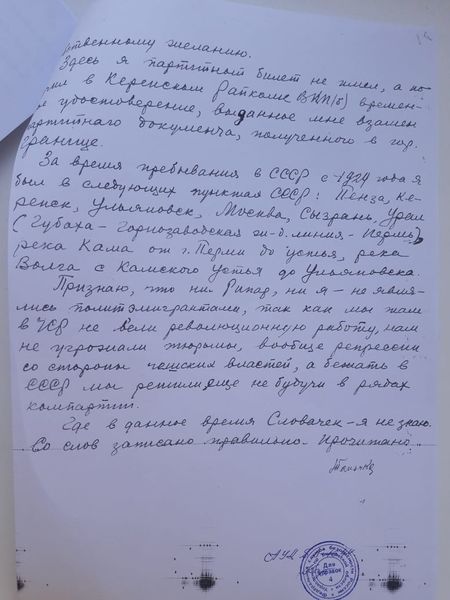 ственному желанию.
Здесь я партийный билет не имел, а по-
в Керенском Райкоме ВКП(б) времен-
удостоверение, выданное мне взамен
партийного документа, полученного в гор.
Границе.
За время пребывания в СССР с 1924 года я
был в следующих пунктах СССР: Пенза, Ке-
ренск, Ульяновск, Москва, Сызрань, Урал
(Губаха - Горнозаводская ж-д. линия - Пермь)
река Кама от г. Перми до устья, река
Волга с Камского Устья до Ульяновска.
Признаю, что ни Рипад, ни я - не явля-
лись политэмигрантами, так как мы там
в ЧСР не вели революционную работу, нам
не угрожали тюрьмы, вообще репрессии
со стороны чешских властей, а бежать в
СССР мы решили еще не будучи в рядах
компартии.
Где в данное время Словачек - я не знаю.
Со слов записано правильно. Прочитано
Для
справок
4